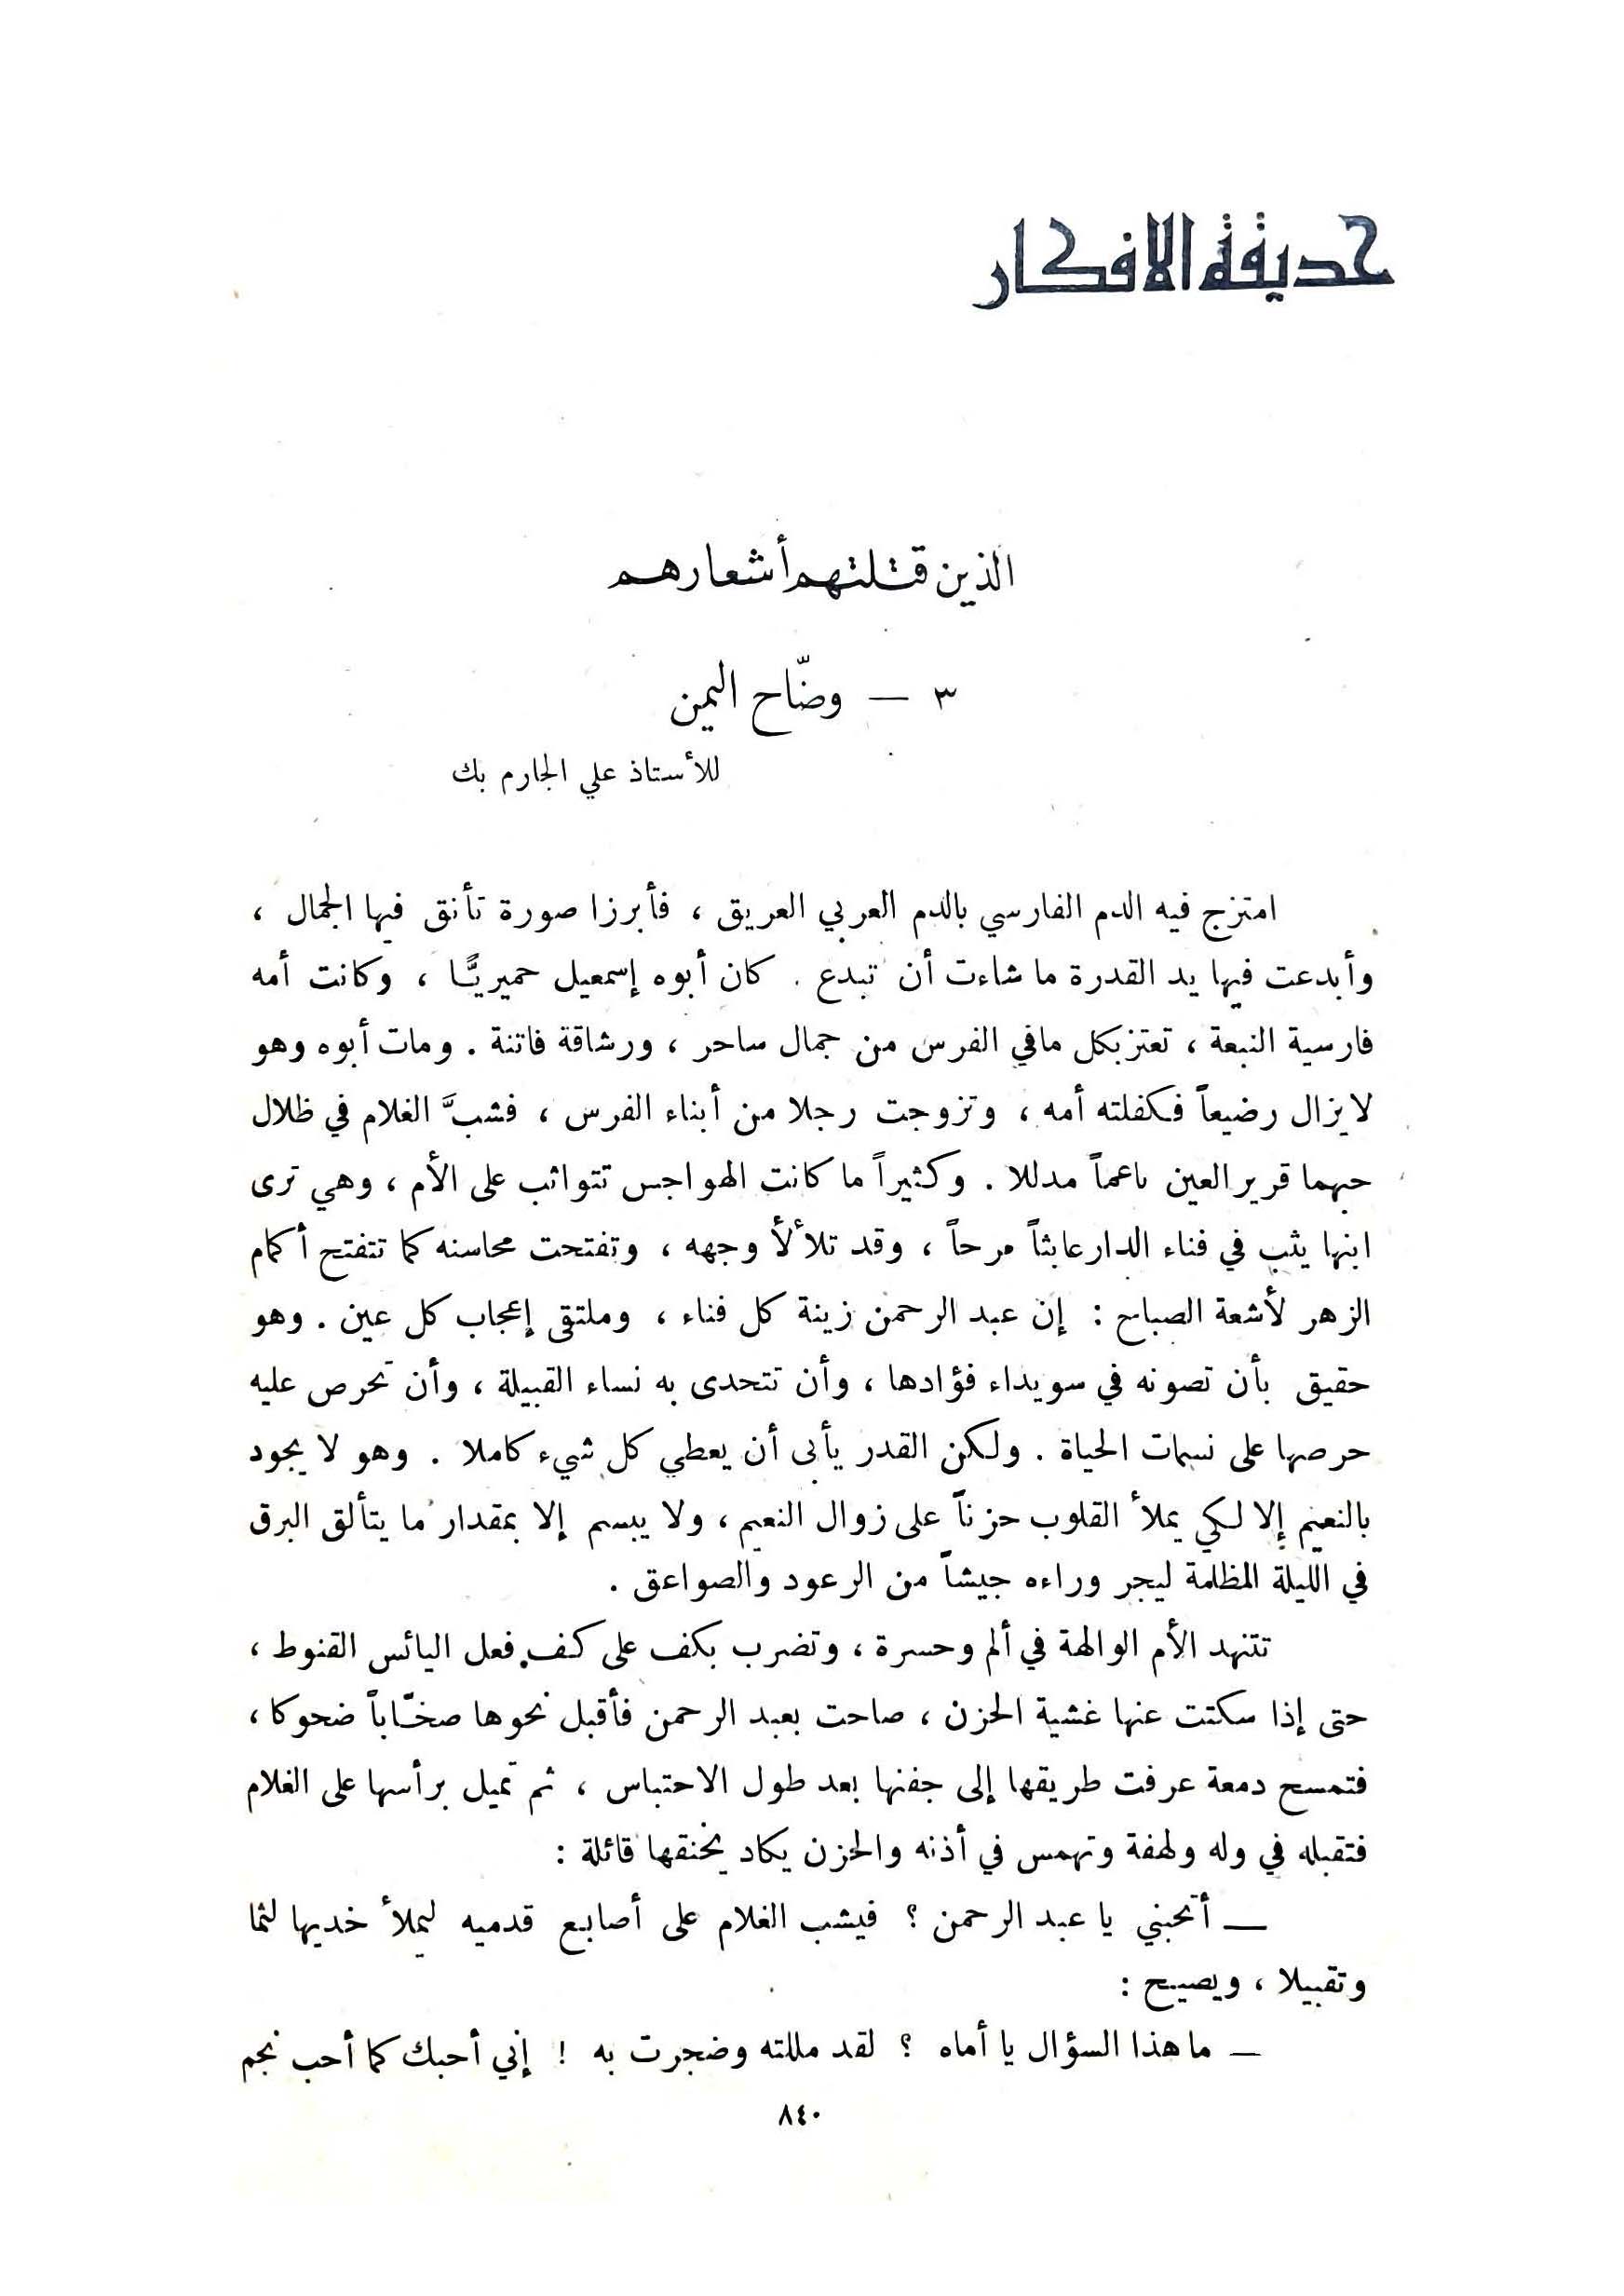 حديقة الافكار
الذين قتلتهم أشعارهم
٣ — وضّاح اليمن
للأستاذ علي الجارم بك
امتزج فيه الدم الفارسي بالدم العربي العريق ، فأبرزا صورة تأنق فيها الجمال ،
وأبدعت فيها يد القدرة ما شاءت أن تبدع . كان أبوه إسمعيل حميريًّا ، وكانت أمه
فارسية النبعة ، تعتز بكل مافي الفرس من جمال ساحر ، ورشاقة فاتنة . ومات أبوه وهو
لا يزال رضيعاً فكفلته أمه ، وتزوجت رجلا من أبناء الفرس ، فشبَّ الغلام في ظلال
حبهما قرير العين ناعماً مدللا . وكثيراً ما كانت الهواجس تتواثب على الأم ، وهي ترى
ابنها يثب في فناء الدار عابثاً مرحاً ، وقد تلألأ وجهه ، وتفتحت محاسنه كما تتفتح أكمام
الزهر لأشعة الصباح : إن عبد الرحمن زينة كل فناء ، وملتقى إعجاب كل عين . وهو
حقيق بأن تصونه في سويداء فؤادها ، وأن تتحدى به نساء القبيلة ، وأن تحرص عليه
حرصها على نسمات الحياة . ولكن القدر يأبى أن يعطي كل شيء كاملا . وهو لا يجود
بالنعيم إلا لكي يملأ القلوب حزناً على زوال النعيم ، ولا يبسم إلا بمقدار ما يتألق البرق
في الليلة المظلمة ليجر وراءه جيشاً من الرعود والصواعق .
تتنهد الأم الوالهة في ألم وحسرة ، وتضرب بكف على كف فعل اليائس القنوط ،
حتى إذا سكتت عنها غشية الحزن ، صاحت بعبد الرحمن فأقبل نحوها صخّاباً ضحوكا ،
فتمسح دمعة عرفت طريقها إلى جفنها بعد طول الاحتباس ، ثم تميل برأسها على الغلام
فتقبله في وله ولهفة وتهمس في أذنه والحزن يكاد يخنقها قائلة :
— أتحبني يا عبد الرحمن ؟ فيشب الغلام على أصابع قدميه ليملأ خديها لثما
وتقبيلا ، ويصيح :
— ما هذا السؤال يا أماه ؟ لقد مللته وضجرت به ! إني أحبك كما أحب نجم
٨٤٠